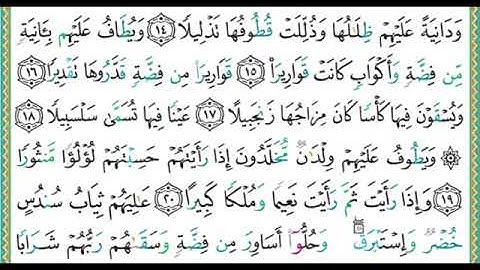 وَدَانِيَةً عَلَيْهِمْ ظِلَٰلُهَا وَذُلِّلَتْ قُطُوفُهَا تَذْلِيلًا ۝١٤ وَيُطَافُ عَلَيْهِم بِـَٔانِيَةٍ
مِّن فِضَّةٍ وَأَكْوَابٍ كَانَتْ قَوَارِيرَا۠ ۝١٥ قَوَارِيرَا۟ مِن فِضَّةٍ قَدَّرُوهَا تَقْدِيرًا ۝١٦
وَيُسْقَوْنَ فِيهَا كَأْسًا كَانَ مِزَاجُهَا زَنجَبِيلًا ۝١٧ عَيْنًا فِيهَا تُسَمَّىٰ سَلْسَبِيلًا ۝١٨
۞ وَيَطُوفُ عَلَيْهِمْ وِلْدَٰنٌ مُّخَلَّدُونَ إِذَا رَأَيْتَهُمْ حَسِبْتَهُمْ لُؤْلُؤًا مَّنثُورًا
۝١٩ وَإِذَا رَأَيْتَ ثَمَّ رَأَيْتَ نَعِيمًا وَمُلْكًا كَبِيرًا ۝٢٠ عَٰلِيَهُمْ ثِيَابُ سُندُسٍ
خُضْرٌ وَإِسْتَبْرَقٌ ۖ وَحُلُّوٓا۟ أَسَاوِرَ مِن فِضَّةٍ وَسَقَىٰهُمْ رَبُّهُمْ شَرَابًا